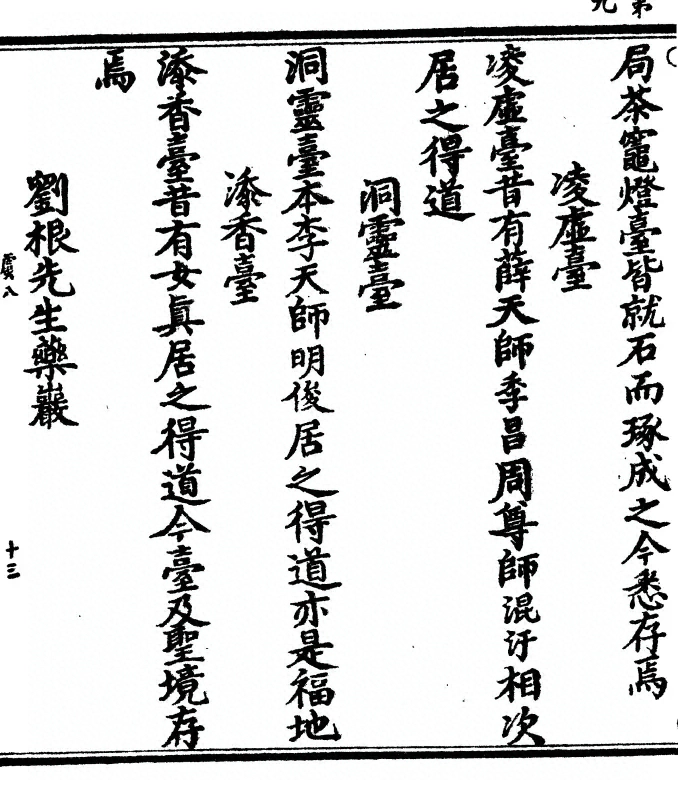 局茶竈燈臺皆就石而琢成之今悉存焉
凌虛臺
凌虛臺昔有薛天師季昌周尊師混汙相次
居之得道
洞靈臺
洞靈臺本李天師明俊居之得道亦是福地
添香臺
添香臺昔有女真居之得道今臺及聖境存
焉
劉根先生藥巖
十三